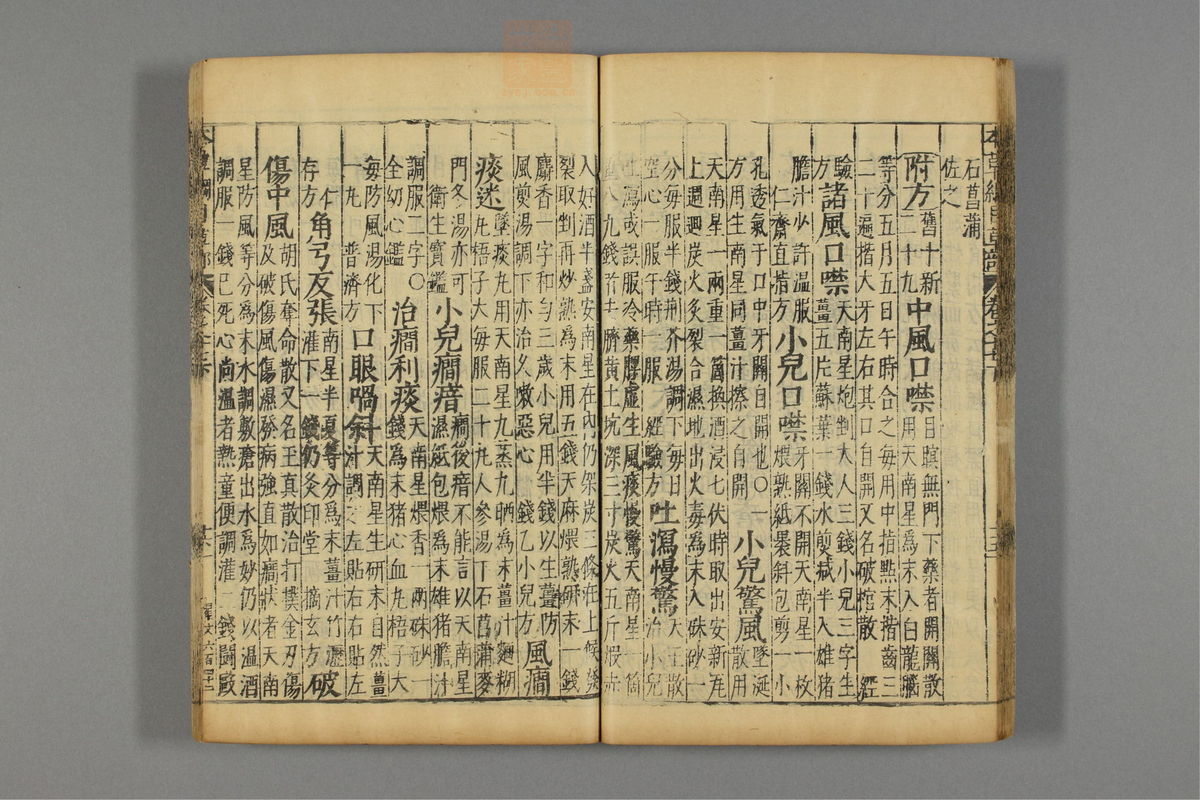 本草綱目草部
石菖蒲
佐之
附方 舊十新
二十九
中風口噤 目瞑無門下藥者開關散
用天南星為末入白龍腦
等分五月五日午時合之每用中指點末揩齒三
二十遍揩大牙左右其口自開又名破棺散 經
驗
方
諸風口噤 天南星炮剉大人三錢小兒三字生
薑五片蘇葉一錢水煎減半入雄豬
膽汁少許溫服
仁齋直指方
小兒口噤 牙關不開天南星一枚
煨熟紙裹斜包剪一小
孔透氣于口中牙關自開也○一
方用生南星同薑汁擦之自開
小兒驚風 墜涎
散用
天南星一兩重一箇換酒浸七伏時取出安新瓦
上週迴炭火炙裂合濕地出火毒為末入硃砂一
分每服半錢荊芥湯調下每日
空心一服午時一服 經驗方
吐瀉慢驚 天王散
治小兒
吐瀉或誤服冷藥脾虛生風痰慢驚天南星一箇
重八九錢者去臍黃土坑深三寸炭火五斤煅赤
入好酒半盞安南星在內仍架炭三條在上候發
裂取剉再炒熟為末用五錢天麻煨熟研末一錢
麝香一字和勻三歲小兒用半錢以生薑防
風煎湯調下亦治久嗽惡心 錢乙小兒方
風癇
痰迷 墜痰丸用天南星九蒸九晒為末薑汁麵糊
丸梧子大每服二十丸人參湯下石菖蒲麥
門冬湯亦可
衛生寶鑑
小兒癇瘖 癇後瘖不能言以天南星
濕紙包煨為末雄豬膽汁
調服二字○
全幼心鑑
治癇利痰 天南星煨香一兩硃砂一
錢為末豬心血丸梧子大
每防風湯化下
一丸 普濟方
口眼喎斜 天南星生研末自然薑
汁調之左貼右右貼左
仁
存方
角弓反張 南星半夏等分為末薑汁竹瀝
灌下一錢仍灸印堂 摘玄方
破
傷中風 胡氏奪命散又名玉真散治打撲金刃傷
及破傷風傷濕發病強直如癇狀者天南
星防風等分為末水調敷瘡出水為妙仍以溫酒
調服一錢已死心尚溫者熱童便調灌二錢鬥毆